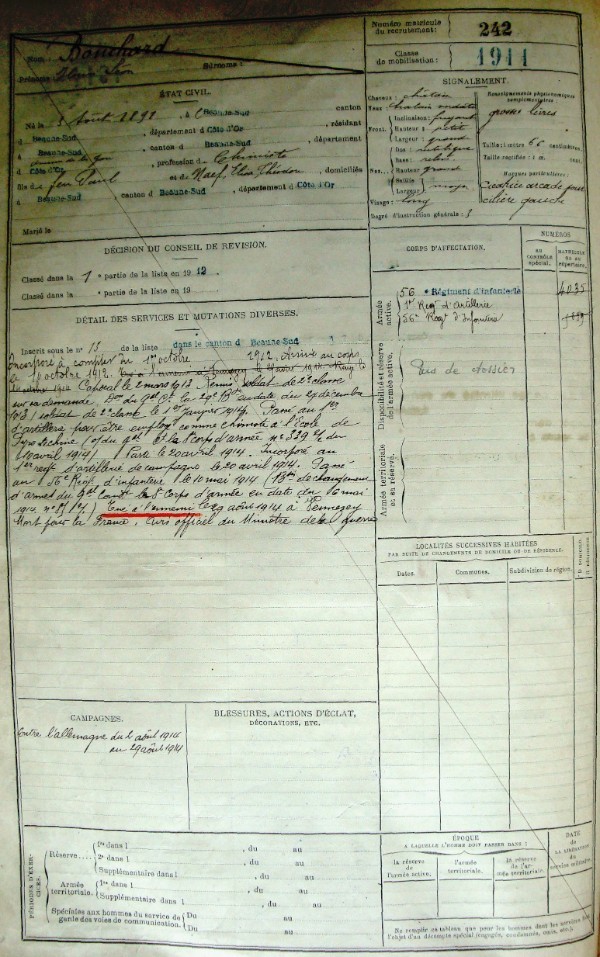 Nom : Bouchard
Prénoms : Léon Surnoms :
ÉTAT CIVIL.
Né le août 1891, à Beaune-Sud canton
d Beaune-Sud, département d Côte d'Or, résidant
à Beaune-Sud, canton d Beaune-Sud, département
d Côte d'Or, profession de Chimiste
fils de feu Paul et de Naef, domiciliés
à Beaune-Sud, canton d Beaune-Sud, département d Côte d'Or
Marié le
DÉCISION DU CONSEIL DE REVISION.
Classé dans la 1e partie de la liste en 1912.
Classé dans la partie de la liste en 19
DÉTAIL DES SERVICES ET MUTATIONS DIVERSES.
Inscrit sous le n° 13 de la liste dans le canton d Beaune-Sud
Incorporé à compter du 1er octobre 1912. Arrivé au corps
le octobre 1912.
Caporal le 2 mars 1913. Remis soldat de 2e classe
sur sa demande. en date du 29 décembre
1913) soldat de 2e classe le 1er janvier 1914. Passé au 1er
d'artillerie pour être employé comme chimiste à l'École de
Pyrotechnie (o/ du gal Ct le 8e corps d'armée n° 339 du
10 avril 1914) Parti le 20 avril 1914. Incorporé au
1er régt d'artillerie de campagne le 20 avril 1914. Passé
au 56e Régt d'infanterie le 10 mai 1914 ( de changement
d'armes du gal Comt le 8e Corps d'armée en date du 16 mai
1914 ) Tué à l'ennemi le 29 août 1914 à Tennezey
Mort pour la France. Avis officiel du Ministre de la guerre
CAMPAGNES.
Contre l'allemagne du 2 août 1914
au 29 août 1914
BLESSURES, ACTIONS D'ÉCLAT,
DÉCORATIONS, ETC.
PÉRIODES D'EXERCICES.
Réserve....
1re dans l , du au
2e dans l , du au
Supplémentaire dans l , du au
Armée territoriale.
1re dans l , du au
Supplémentaire dans l , du au
Spéciales aux hommes du service de garde des voies de communication.
Du au
Du au
Numéro matricule du recrutement : 242
Classe de mobilisation : 1911
SIGNALEMENT.
Cheveux : châtain
Yeux :
Front. Inclinaison : fuyant
Hauteur : petite
Largeur : grande
Nez... Dos : rectiligne
Base : relevé
Hauteur : grande
Saillie :
Largeur : moyen
Visage : long
Degré d'instruction générale : 3
Renseignements physionomiques complémentaires :
grosses lèvres
Taille : 1 mètre 66 centimètres.
Taille rectifiée : 1 m. cent.
Marques particulières :
Cicatrice arcade sourcilière gauche
CORPS D'AFFECTATION.
NUMÉROS
au contrôle spécial.
matricule ou au répertoire.
Armée active.
56e Régiment d'infanterie 4035
1er Régt d'Artillerie
56e Régt d'Infanterie
Disponibilité et réserve de l'armée active.
Pas de dossier
Armée territoriale et sa réserve.
LOCALITÉS SUCCESSIVES HABITÉES
PAR SUITE DE CHANGEMENTS DE DOMICILE OU DE RÉSIDENCE.
Dates. Communes. Subdivision de région.
D domicile
R résidence
ÉPOQUE
A LAQUELLE L'HOMME DOIT PASSER DANS :
la réserve de l'armée active.
l'armée territoriale.
la réserve de l'armée territoriale.
DATE
de la LIBÉRATION du service militaire.
Ne remplir ce tableau que pour les hommes dont les services font
l'objet d'un décompte spécial (engagés, condamnés, omis, etc.)